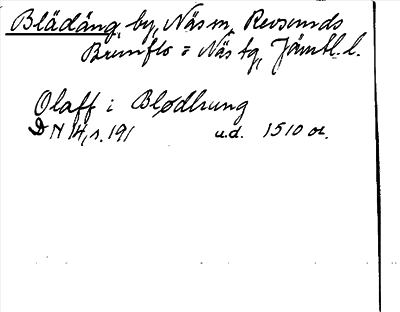 Blädäng, by, Näs m, Revsunds
Brunflo = Näs tg, Jämtl. l.
Olaff i Blødhung
DN 14, s. 191 u.d. 1510 or.